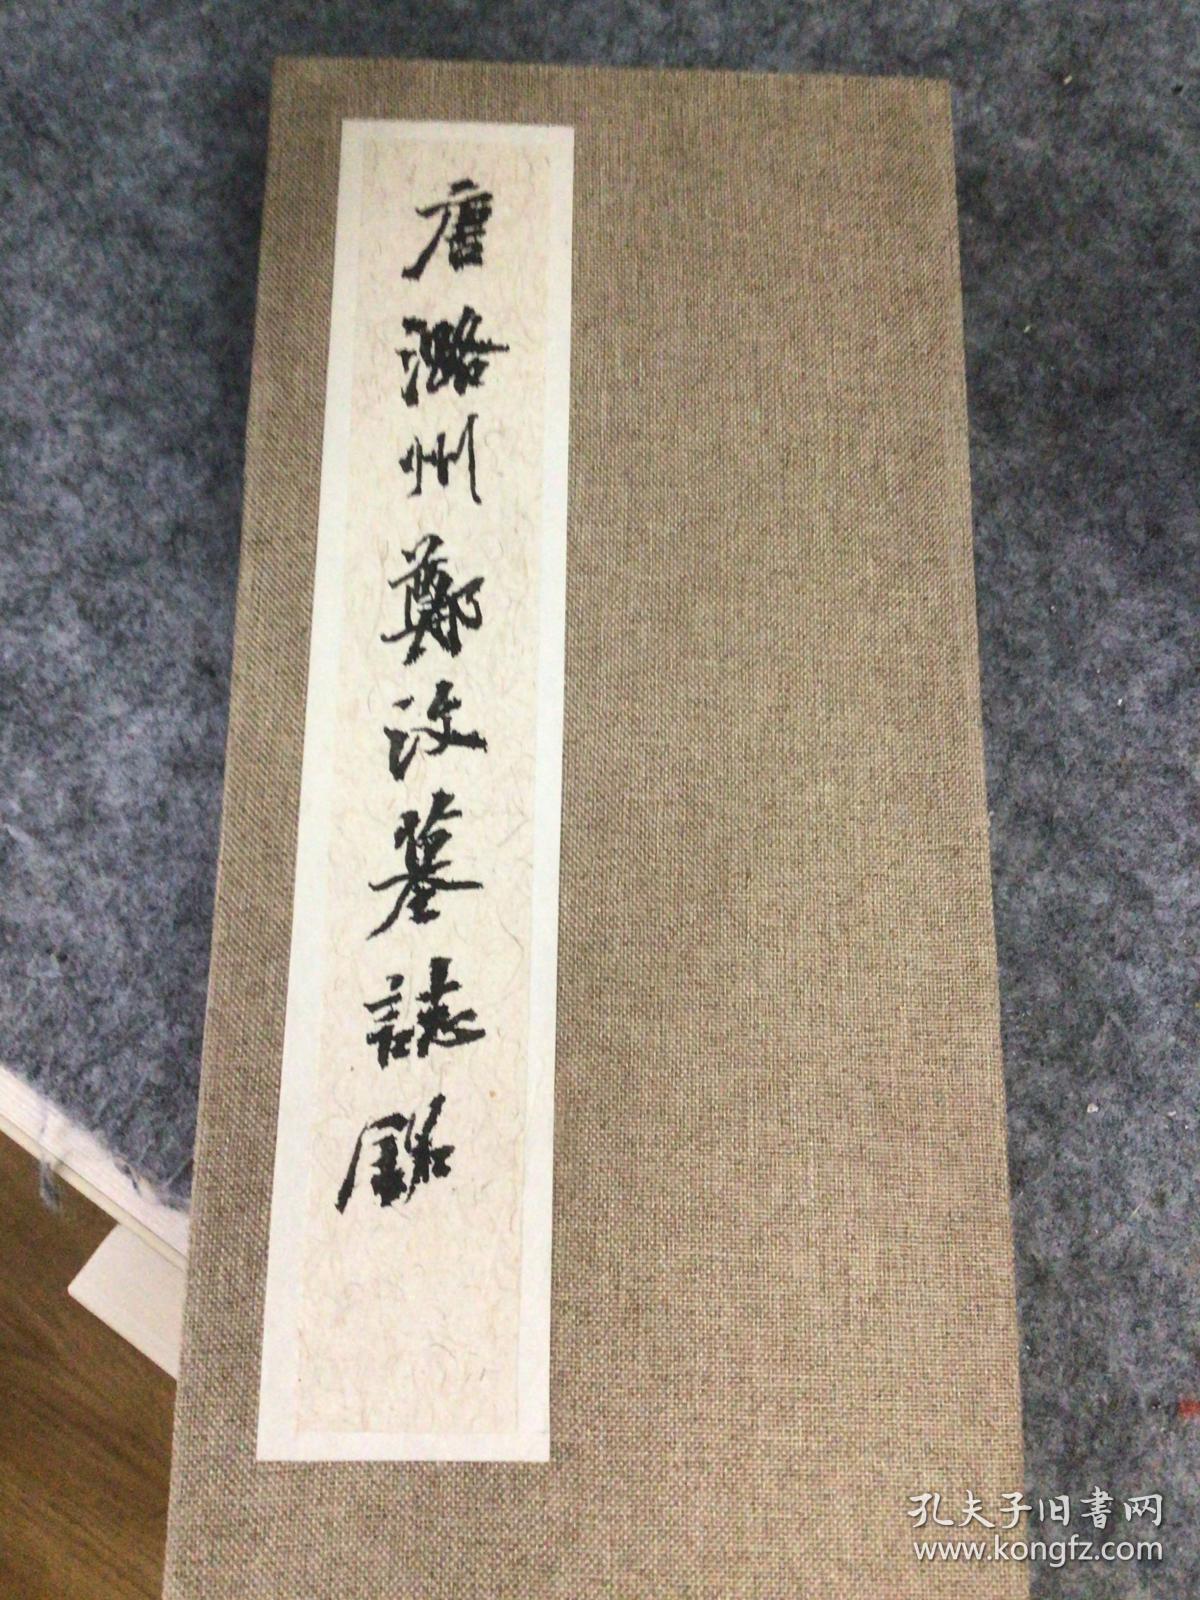 唐潞州鄭汶墓誌銘
孔夫子旧書网
www.kongfz.com